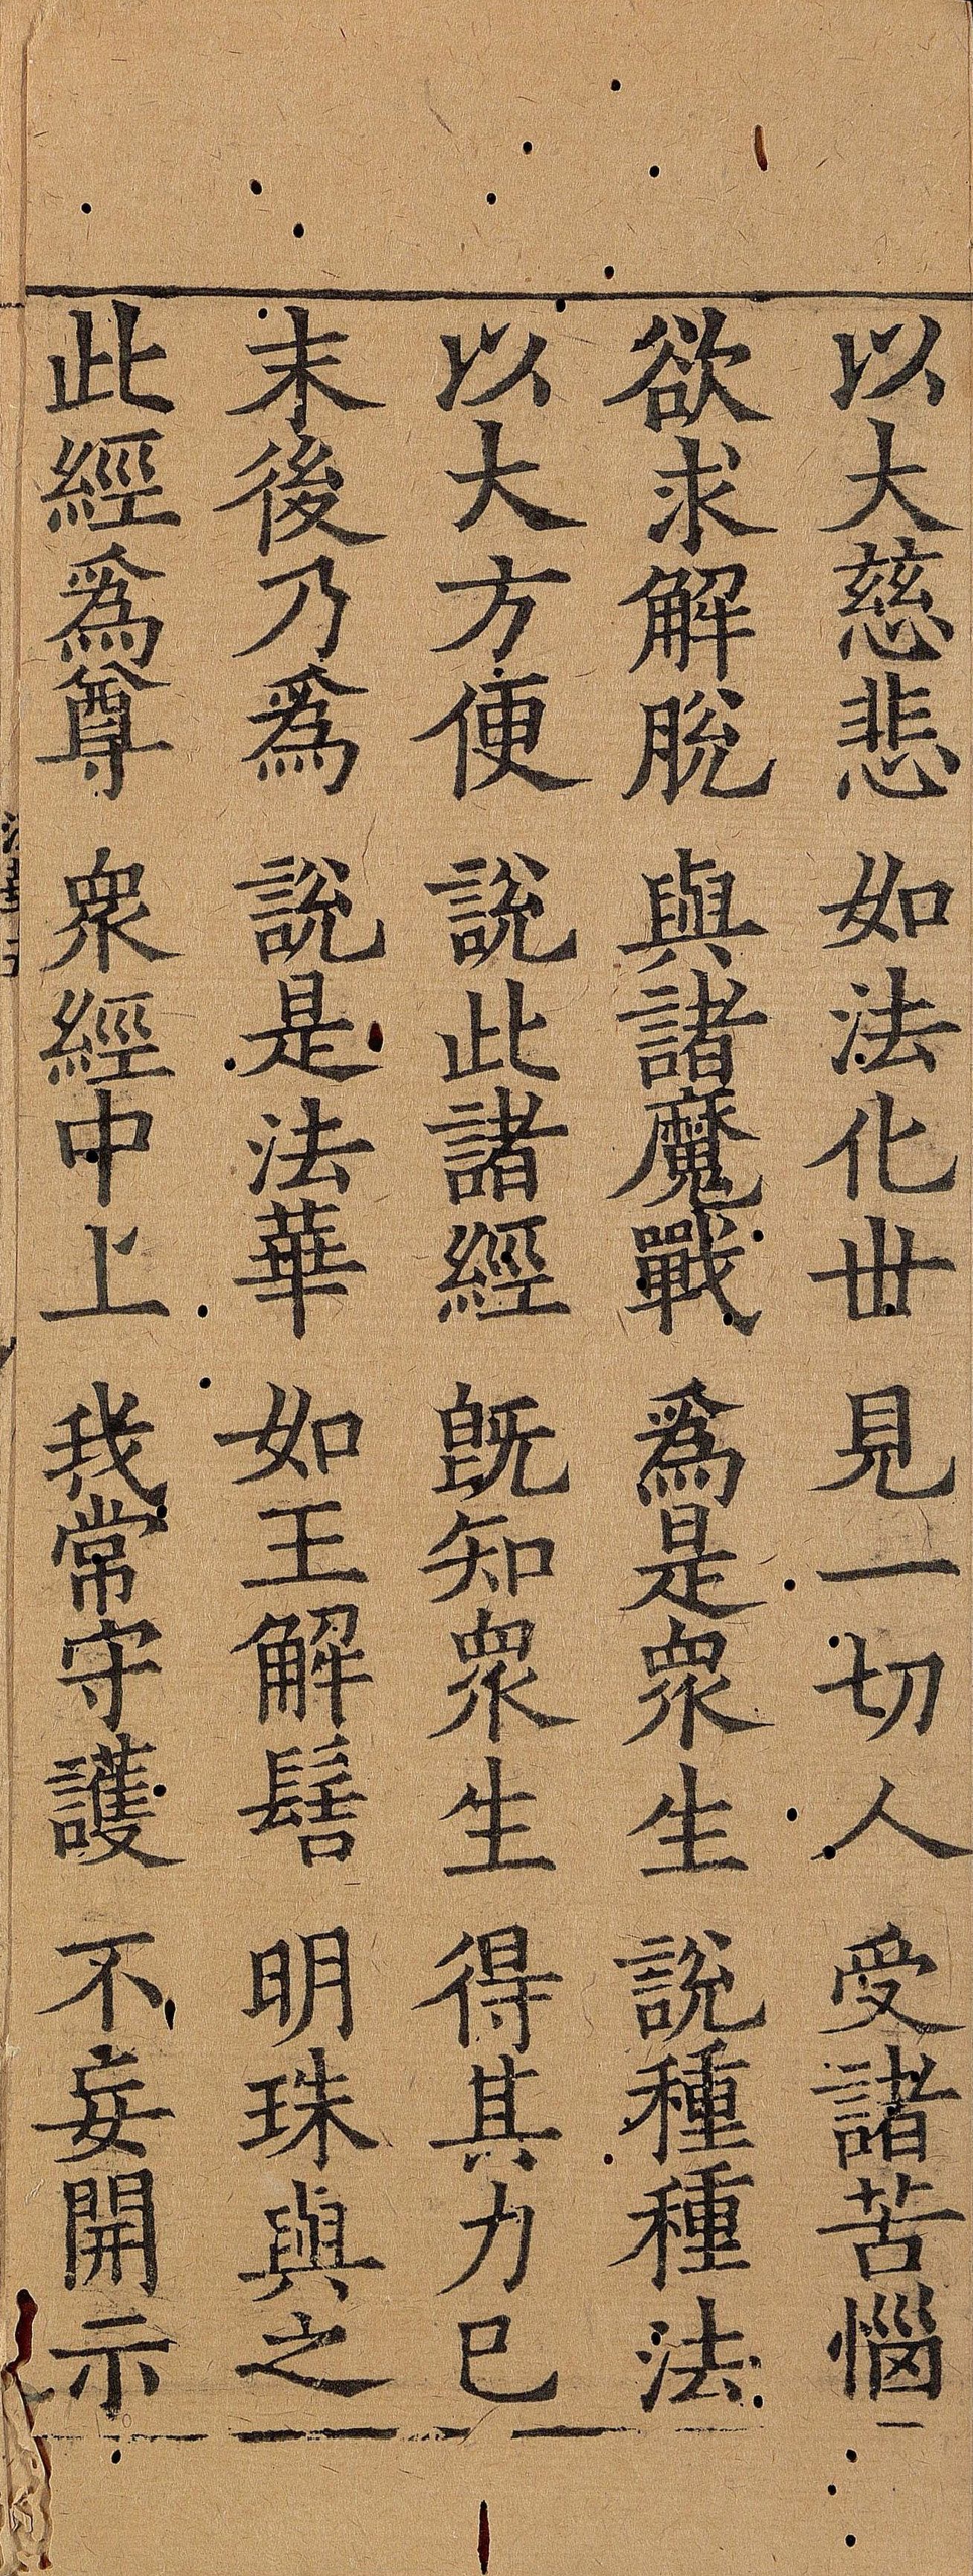 以大慈悲　如法化世　見一切人　受諸苦惱
欲求解脫　與諸魔戰　爲是衆生　說種種法
以大方便　說此諸經　旣知衆生　得其力已
末後乃爲　說是法華　如王解髻　明珠與之
此經爲尊　衆經中上　我常守護　不妄開示